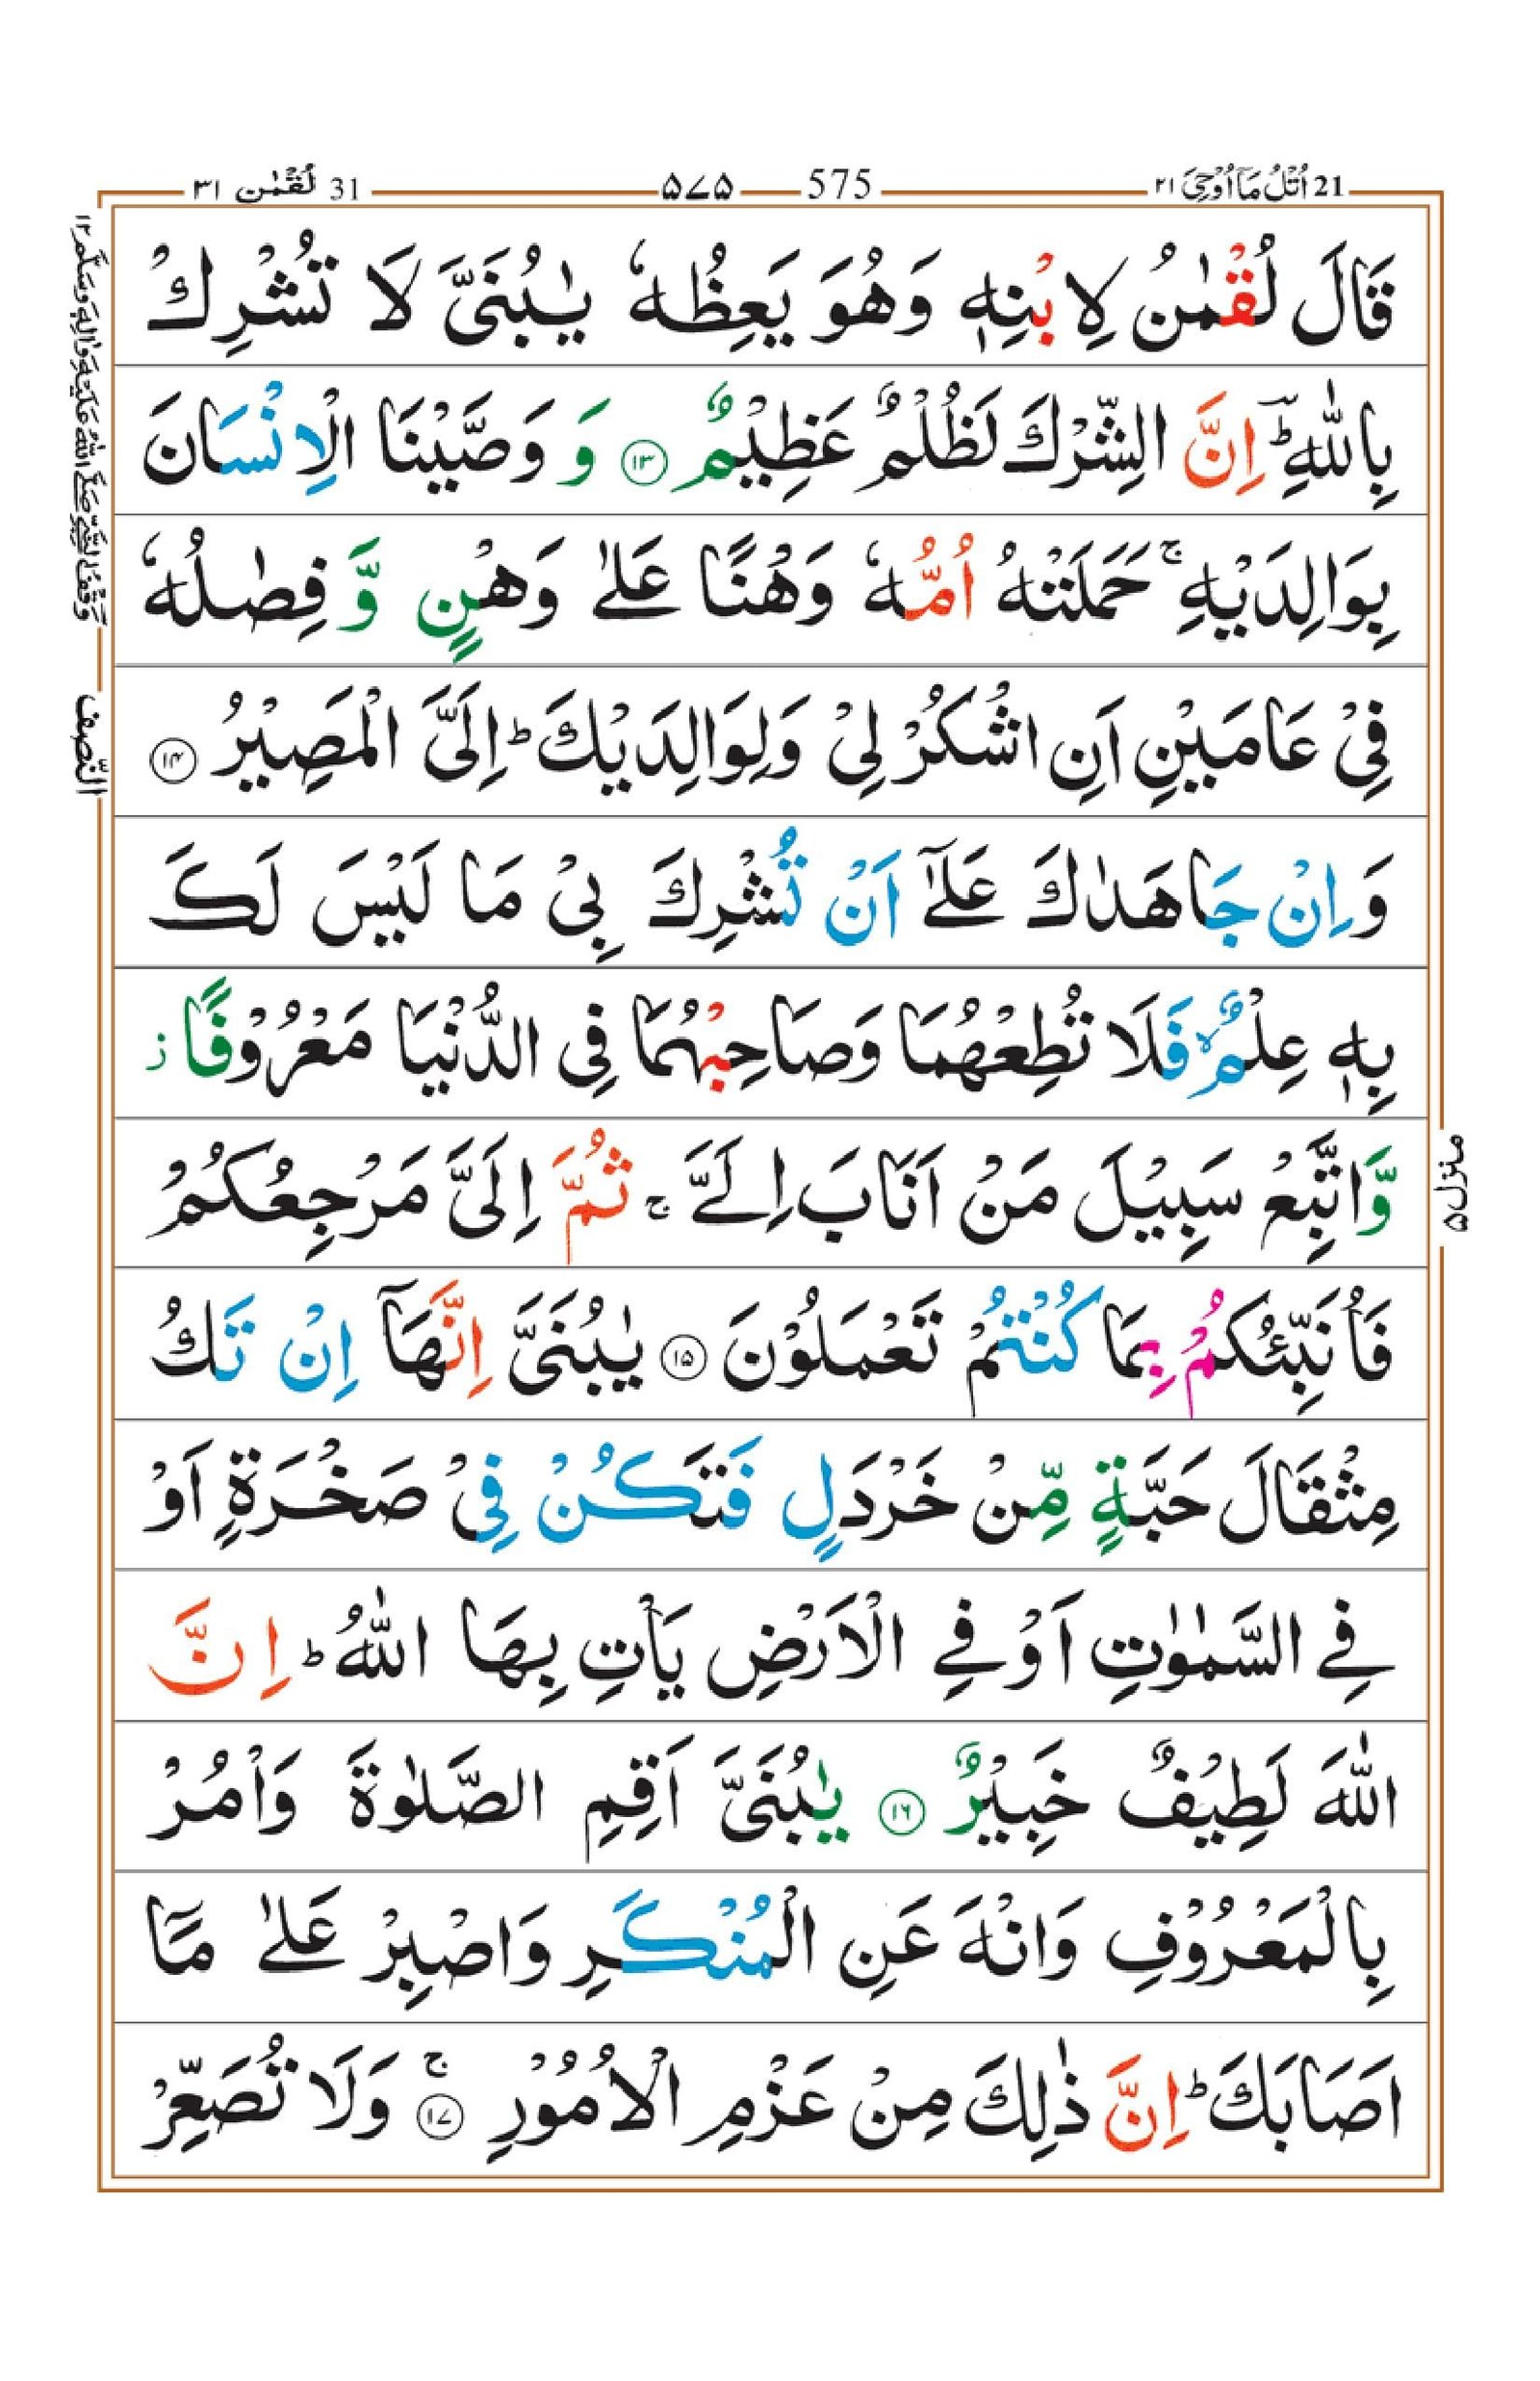 21 اُتْلُ مَآ اُوْحِیَ ۲۱ 575 ۵۷۵ 31 لُقْمٰن ۳۱
قَالَ لُقْمٰنُ لِابْنِهٖ وَهُوَ يَعِظُهٗ يٰبُنَيَّ لَا تُشْرِكْ
بِاللّٰهِ ؕ اِنَّ الشِّرْكَ لَظُلْمٌ عَظِيْمٌ ﴿۱۳﴾ وَ وَصَّيْنَا الْاِنْسَانَ
بِوَالِدَيْهِ ۚ حَمَلَتْهُ اُمُّهٗ وَهْنًا عَلٰى وَهْنٍ وَّ فِصٰلُهٗ
فِيْ عَامَيْنِ اَنِ اشْكُرْ لِيْ وَلِوَالِدَيْكَ ؕ اِلَيَّ الْمَصِيْرُ ﴿۱۴﴾
وَاِنْ جَاهَدٰكَ عَلٰٓى اَنْ تُشْرِكَ بِيْ مَا لَيْسَ لَكَ
بِهٖ عِلْمٌ ۙ فَلَا تُطِعْهُمَا وَصَاحِبْهُمَا فِي الدُّنْيَا مَعْرُوْفًا ز
وَّاتَّبِعْ سَبِيْلَ مَنْ اَنَابَ اِلَيَّ ۚ ثُمَّ اِلَيَّ مَرْجِعُكُمْ
فَاُنَبِّئُكُمْ بِمَا كُنْتُمْ تَعْمَلُوْنَ ﴿۱۵﴾ يٰبُنَيَّ اِنَّهَآ اِنْ تَكُ
مِثْقَالَ حَبَّةٍ مِّنْ خَرْدَلٍ فَتَكُنْ فِيْ صَخْرَةٍ اَوْ
فِي السَّمٰوٰتِ اَوْ فِي الْاَرْضِ يَاْتِ بِهَا اللّٰهُ ؕ اِنَّ
اللّٰهَ لَطِيْفٌ خَبِيْرٌ ﴿۱۶﴾ يٰبُنَيَّ اَقِمِ الصَّلٰوةَ وَاْمُرْ
بِالْمَعْرُوْفِ وَانْهَ عَنِ الْمُنْكَرِ وَاصْبِرْ عَلٰى مَآ
اَصَابَكَ ؕ اِنَّ ذٰلِكَ مِنْ عَزْمِ الْاُمُوْرِ ۚ ﴿۱۷﴾ وَلَا تُصَعِّرْ
منزل ۵
وَقْفُ النَّبِيِّ صَلَّى اللّٰهُ عَلَيْهِ وَاٰلِهٖ وَسَلَّم ۱۲
النّصف